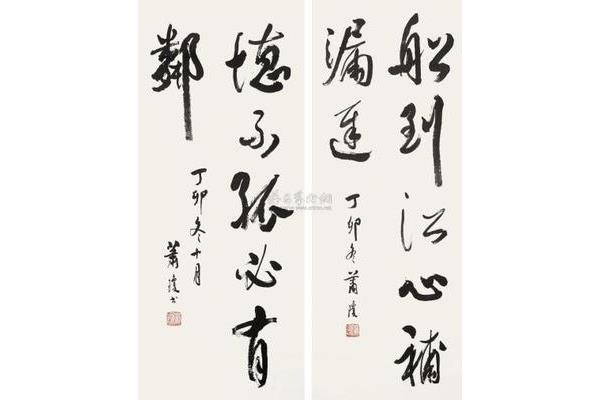 船到江心補
漏遲
丁卯冬 蕭
德不孤必有
鄰
丁卯冬十月
蕭